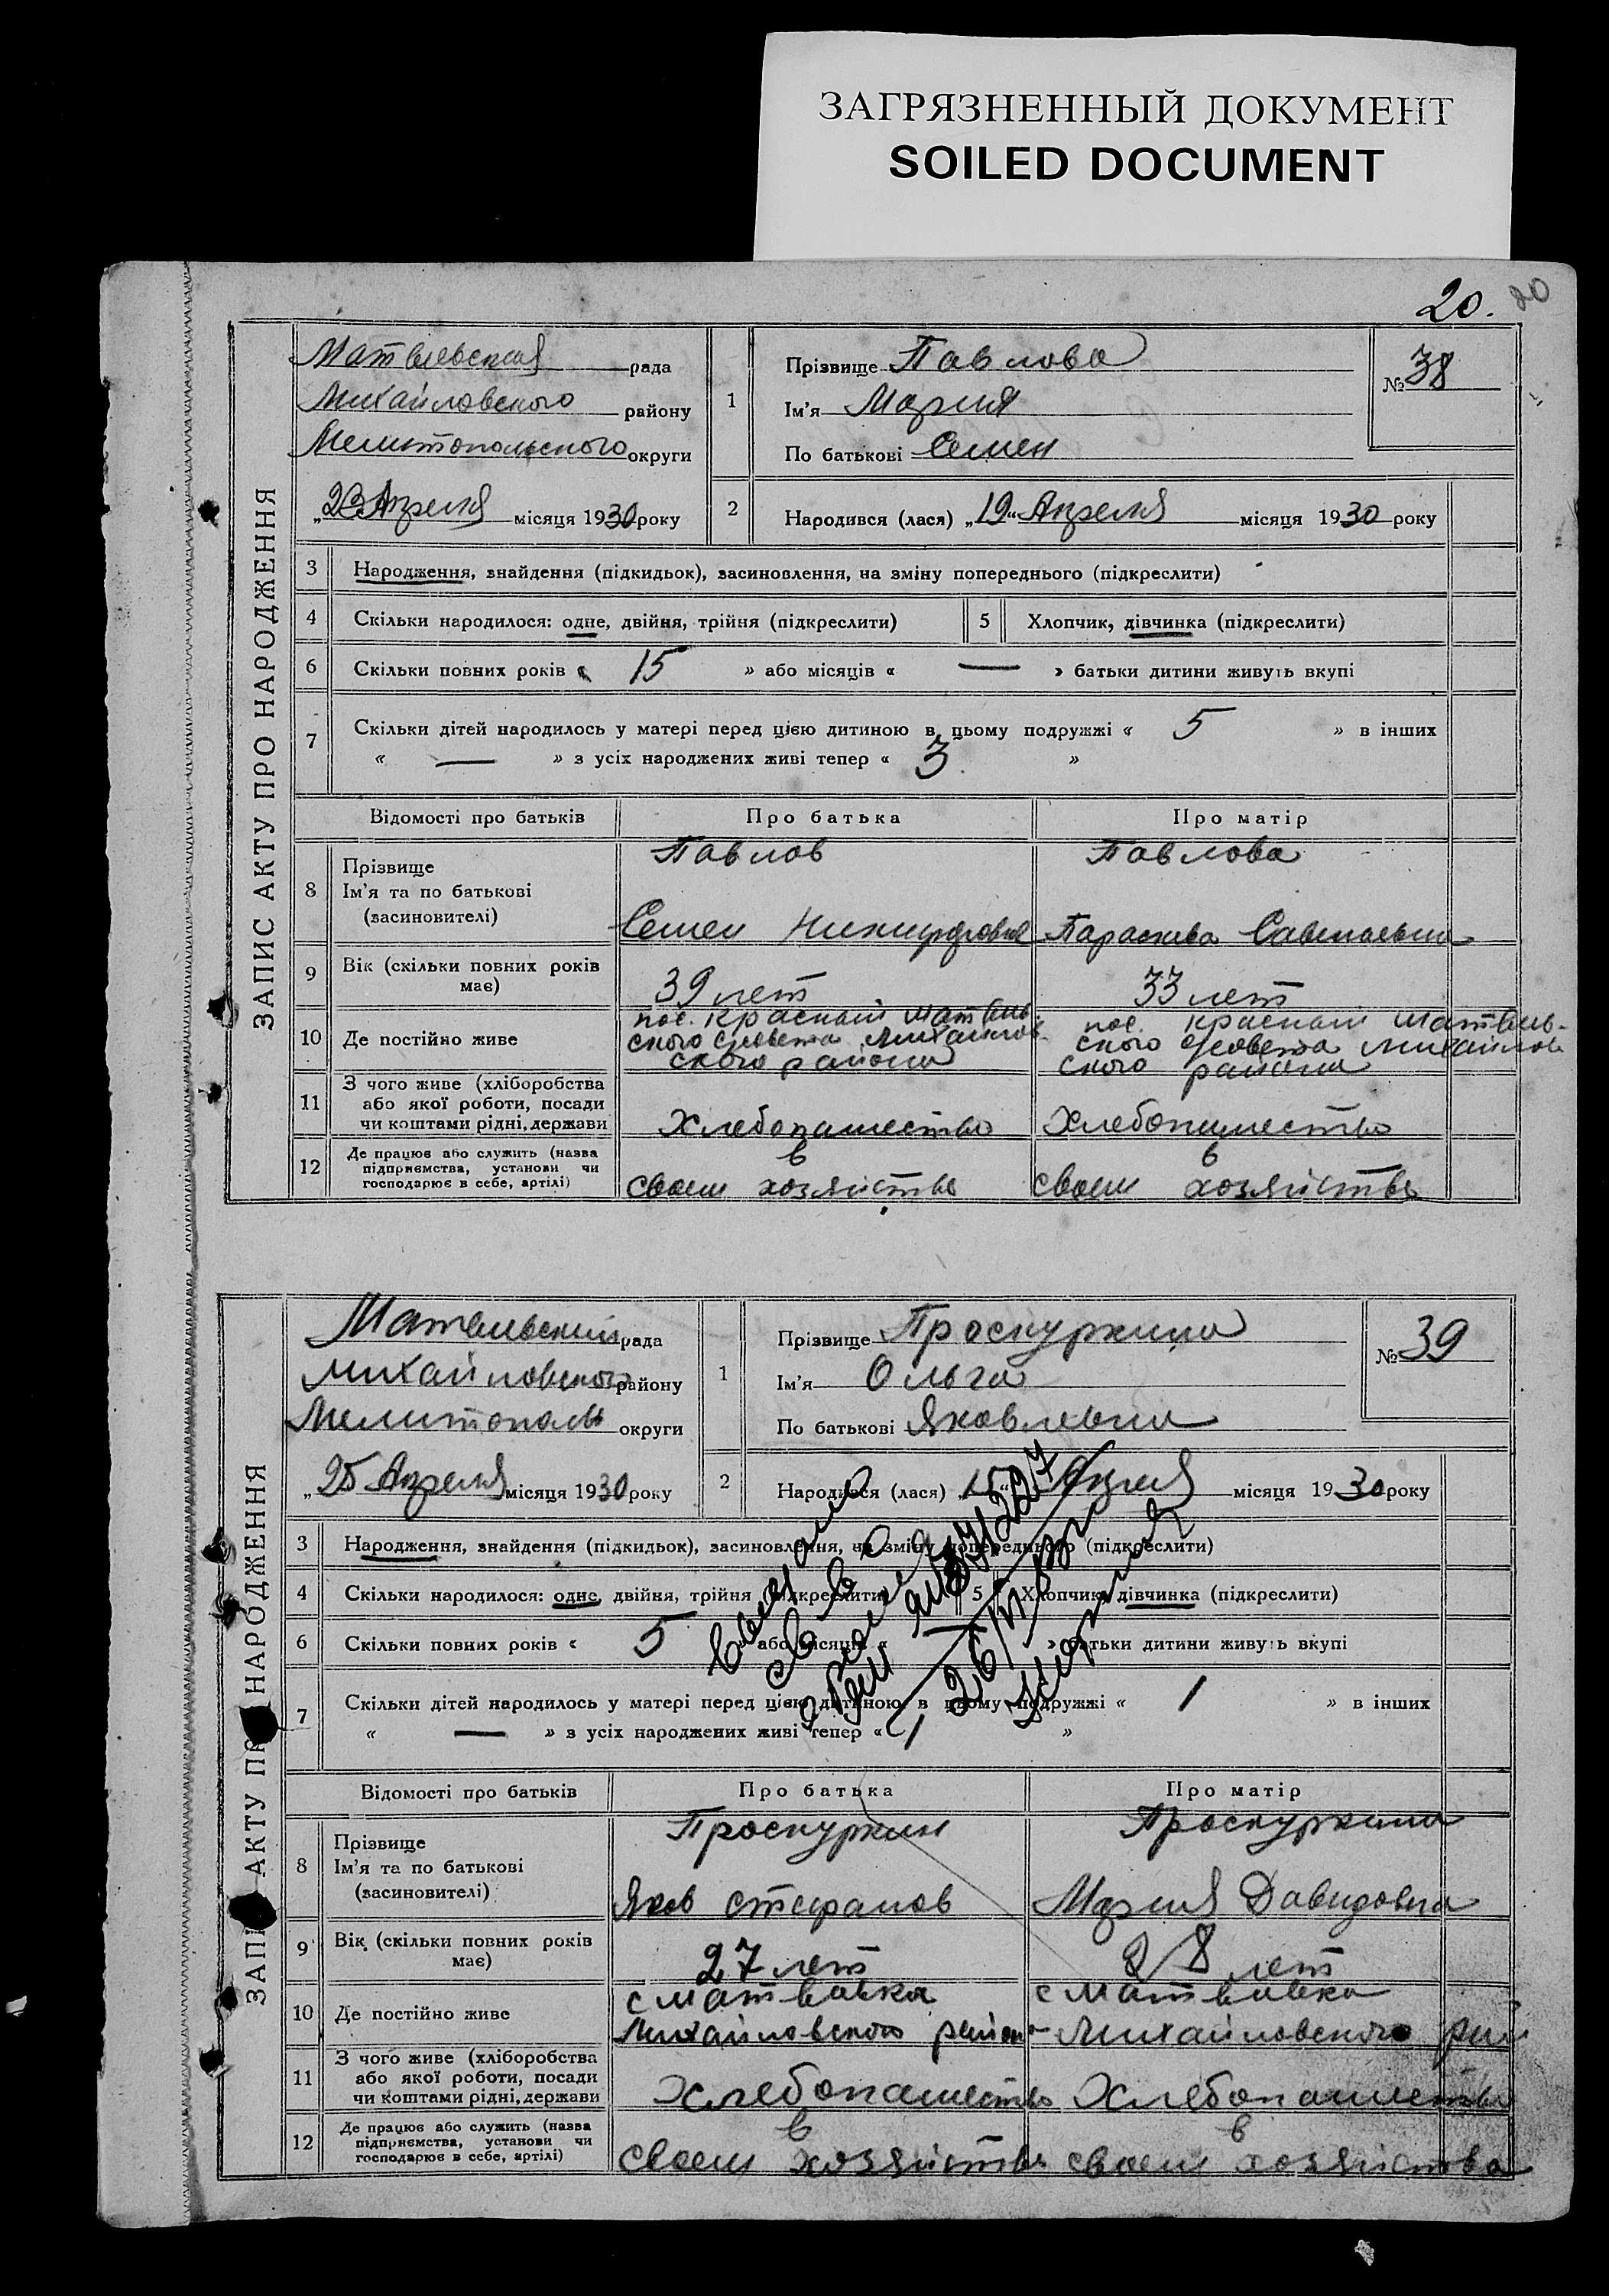 ЗАГРЯЗНЕННЫЙ ДОКУМЕНТ
SOILED DOCUMENT
20. 20
ЗАПИС АКТУ ПРО НАРОДЖЕННЯ
Матвеевская рада
Михайловского району
Мелитопольского округи
„23 Апреля місяця 1930 року
1
Прізвище Павлова
Ім'я Мария
По батькові Семен
№ 38
2 Народився (лася) „19“ Апреля місяця 1930 року
3 Народження, знайдення (підкидьок), засиновлення, на зміну попереднього (підкреслити)
4 Скільки народилося: одне, двійня, трійня (підкреслити) 5 Хлопчик, дівчинка (підкреслити)
6 Скільки повних років « 15 » або місяців « — » батьки дитини живуть вкупі
7 Скільки дітей народилось у матері перед цією дитиною в цьому подружжі « 5 » в інших
« — » з усіх народжених живі тепер « 3 »
Відомості про батьків Про батька Про матір
8 Прізвище
Ім'я та по батькові
(засиновителі)
Павлов
Семен
Павлова
Параскева
9 Вік (скільки повних років
має)
39 лет 33 лет
10 Де постійно живе
пос. Красный Матвеев-
ского с/совета Михайлов-
ского района
пос. Красный Матвеев-
ского с/совета Михайлов
ского района
11 З чого живе (хліборобства
або якої роботи, посади
чи коштами рідні, держави
Хлебопашество Хлебопашество
12 Де працює або служить (назва
підприємства, установи чи
господарює в себе, артілі)
в
своем хозяйстве
в
своем хозяйстве
ЗАПИС АКТУ ПРО НАРОДЖЕННЯ
Матвеевский рада
Михайловского району
Мелитополь округи
„25 Апреля місяця 1930 року
1
Прізвище Проскуркина
Ім'я Ольга
По батькові Яковлевна
№ 39
2 Народився (лася) „15“ Апреля місяця 1930 року
3 Народження, знайдення (підкидьок), засиновлення, на зміну попереднього (підкреслити)
4 Скільки народилося: одне, двійня, трійня (підкреслити) 5 Хлопчик, дівчинка (підкреслити)
6 Скільки повних років « 5 » або місяців « — » батьки дитини живуть вкупі
7 Скільки дітей народилось у матері перед цією дитиною в цьому подружжі « 1 » в інших
« — » з усіх народжених живі тепер « 1 »
Відомості про батьків Про батька Про матір
8 Прізвище
Ім'я та по батькові
(засиновителі)
Проскуркин
Яков Стефанов
Проскуркина
Мария Давидовна
9 Вік (скільки повних років
має)
27 лет 28 лет
10 Де постійно живе
с Матвеевка
Михайловского район
с Матвеевка
Михайловского рай
11 З чого живе (хліборобства
або якої роботи, посади
чи коштами рідні, держави
Хлебопашество Хлебопашество
12 Де працює або служить (назва
підприємства, установи чи
господарює в себе, артілі)
в
своем хозяйстве
в
своем хозяйстве